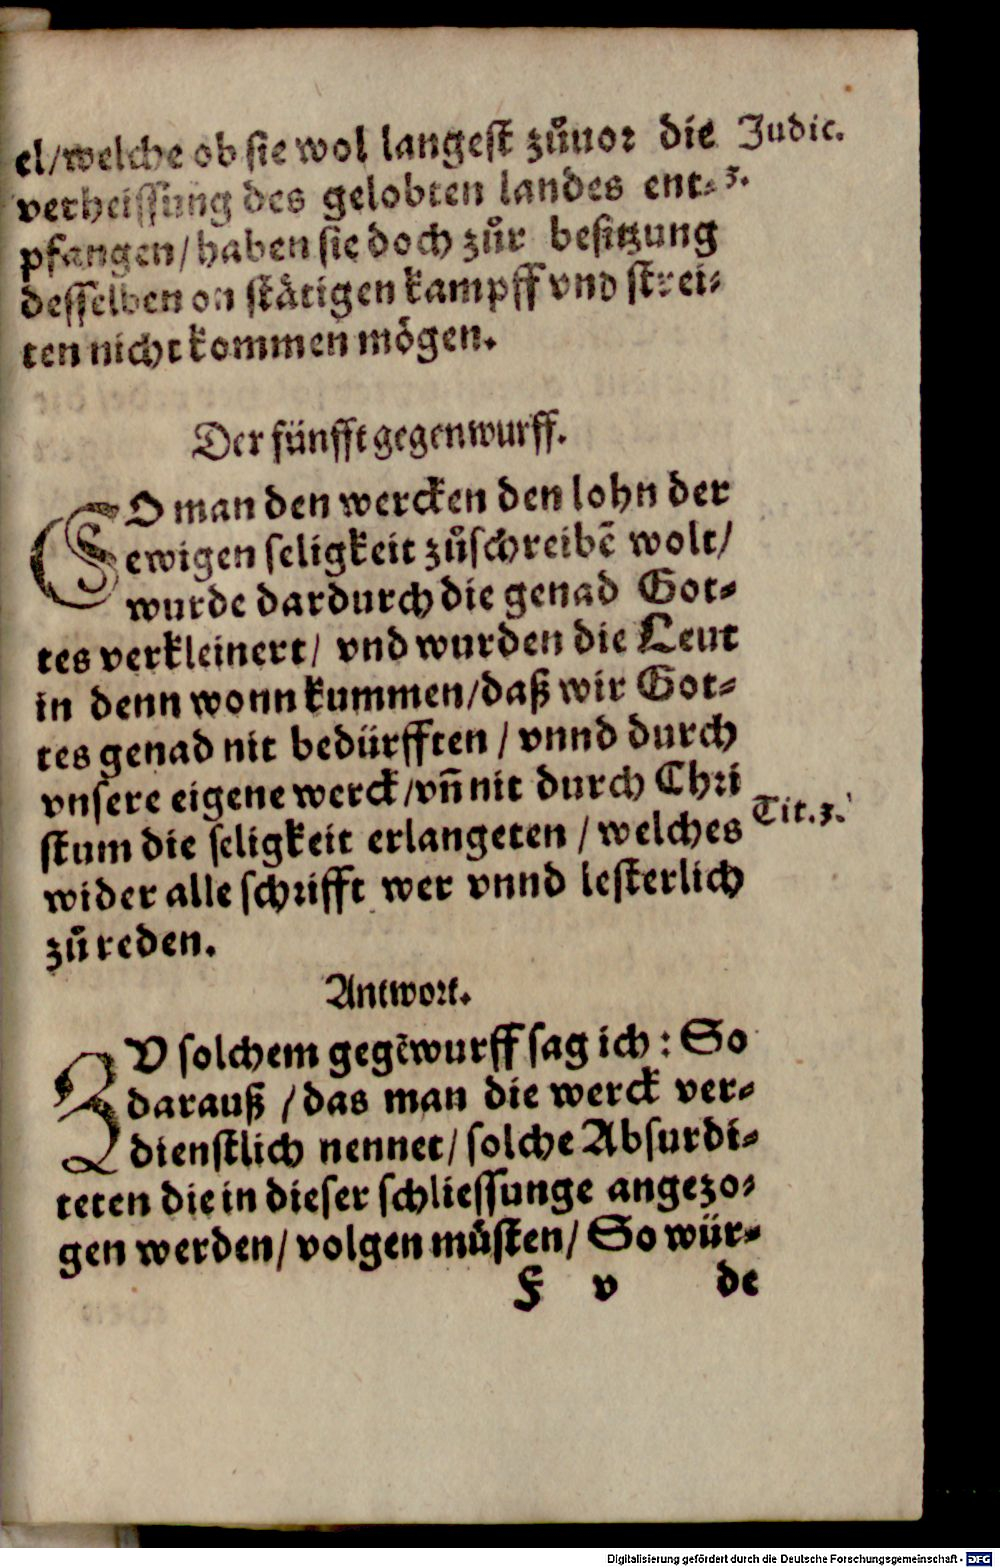 el/welche ob sie wol langest zůuor die Judic.
verheissung des gelobten landes ent- 3.
pfangen/haben sie doch zůr besitzung
desselben on stätigen kampff vnd strei-
ten nicht kommen mögen.
Der fünfft gegenwurff.
SO man den wercken den lohn der
ewigen seligkeit zůschreibẽ wolt/
wurde dardurch die genad Got-
tes verkleinert/ vnd wurden die Leut
in denn wonn kummen/daß wir Got-
tes genad nit bedürfften / vnnd durch
vnsere eigene werck/vñ nit durch Chri
stum die seligkeit erlangeten / welches Tit.3.
wider alle schrifft wer vnnd lesterlich
zů reden.
Antwort.
ZV solchem gegẽwurff sag ich : So
darauß /das man die werck ver-
dienstlich nennet/ solche Absurdi-
teten die in dieser schliessunge angezo-
gen werden/ volgen müsten/ So wür-
F v de
Digitalisierung gefördert durch die Deutsche Forschungsgemeinschaft - DFG